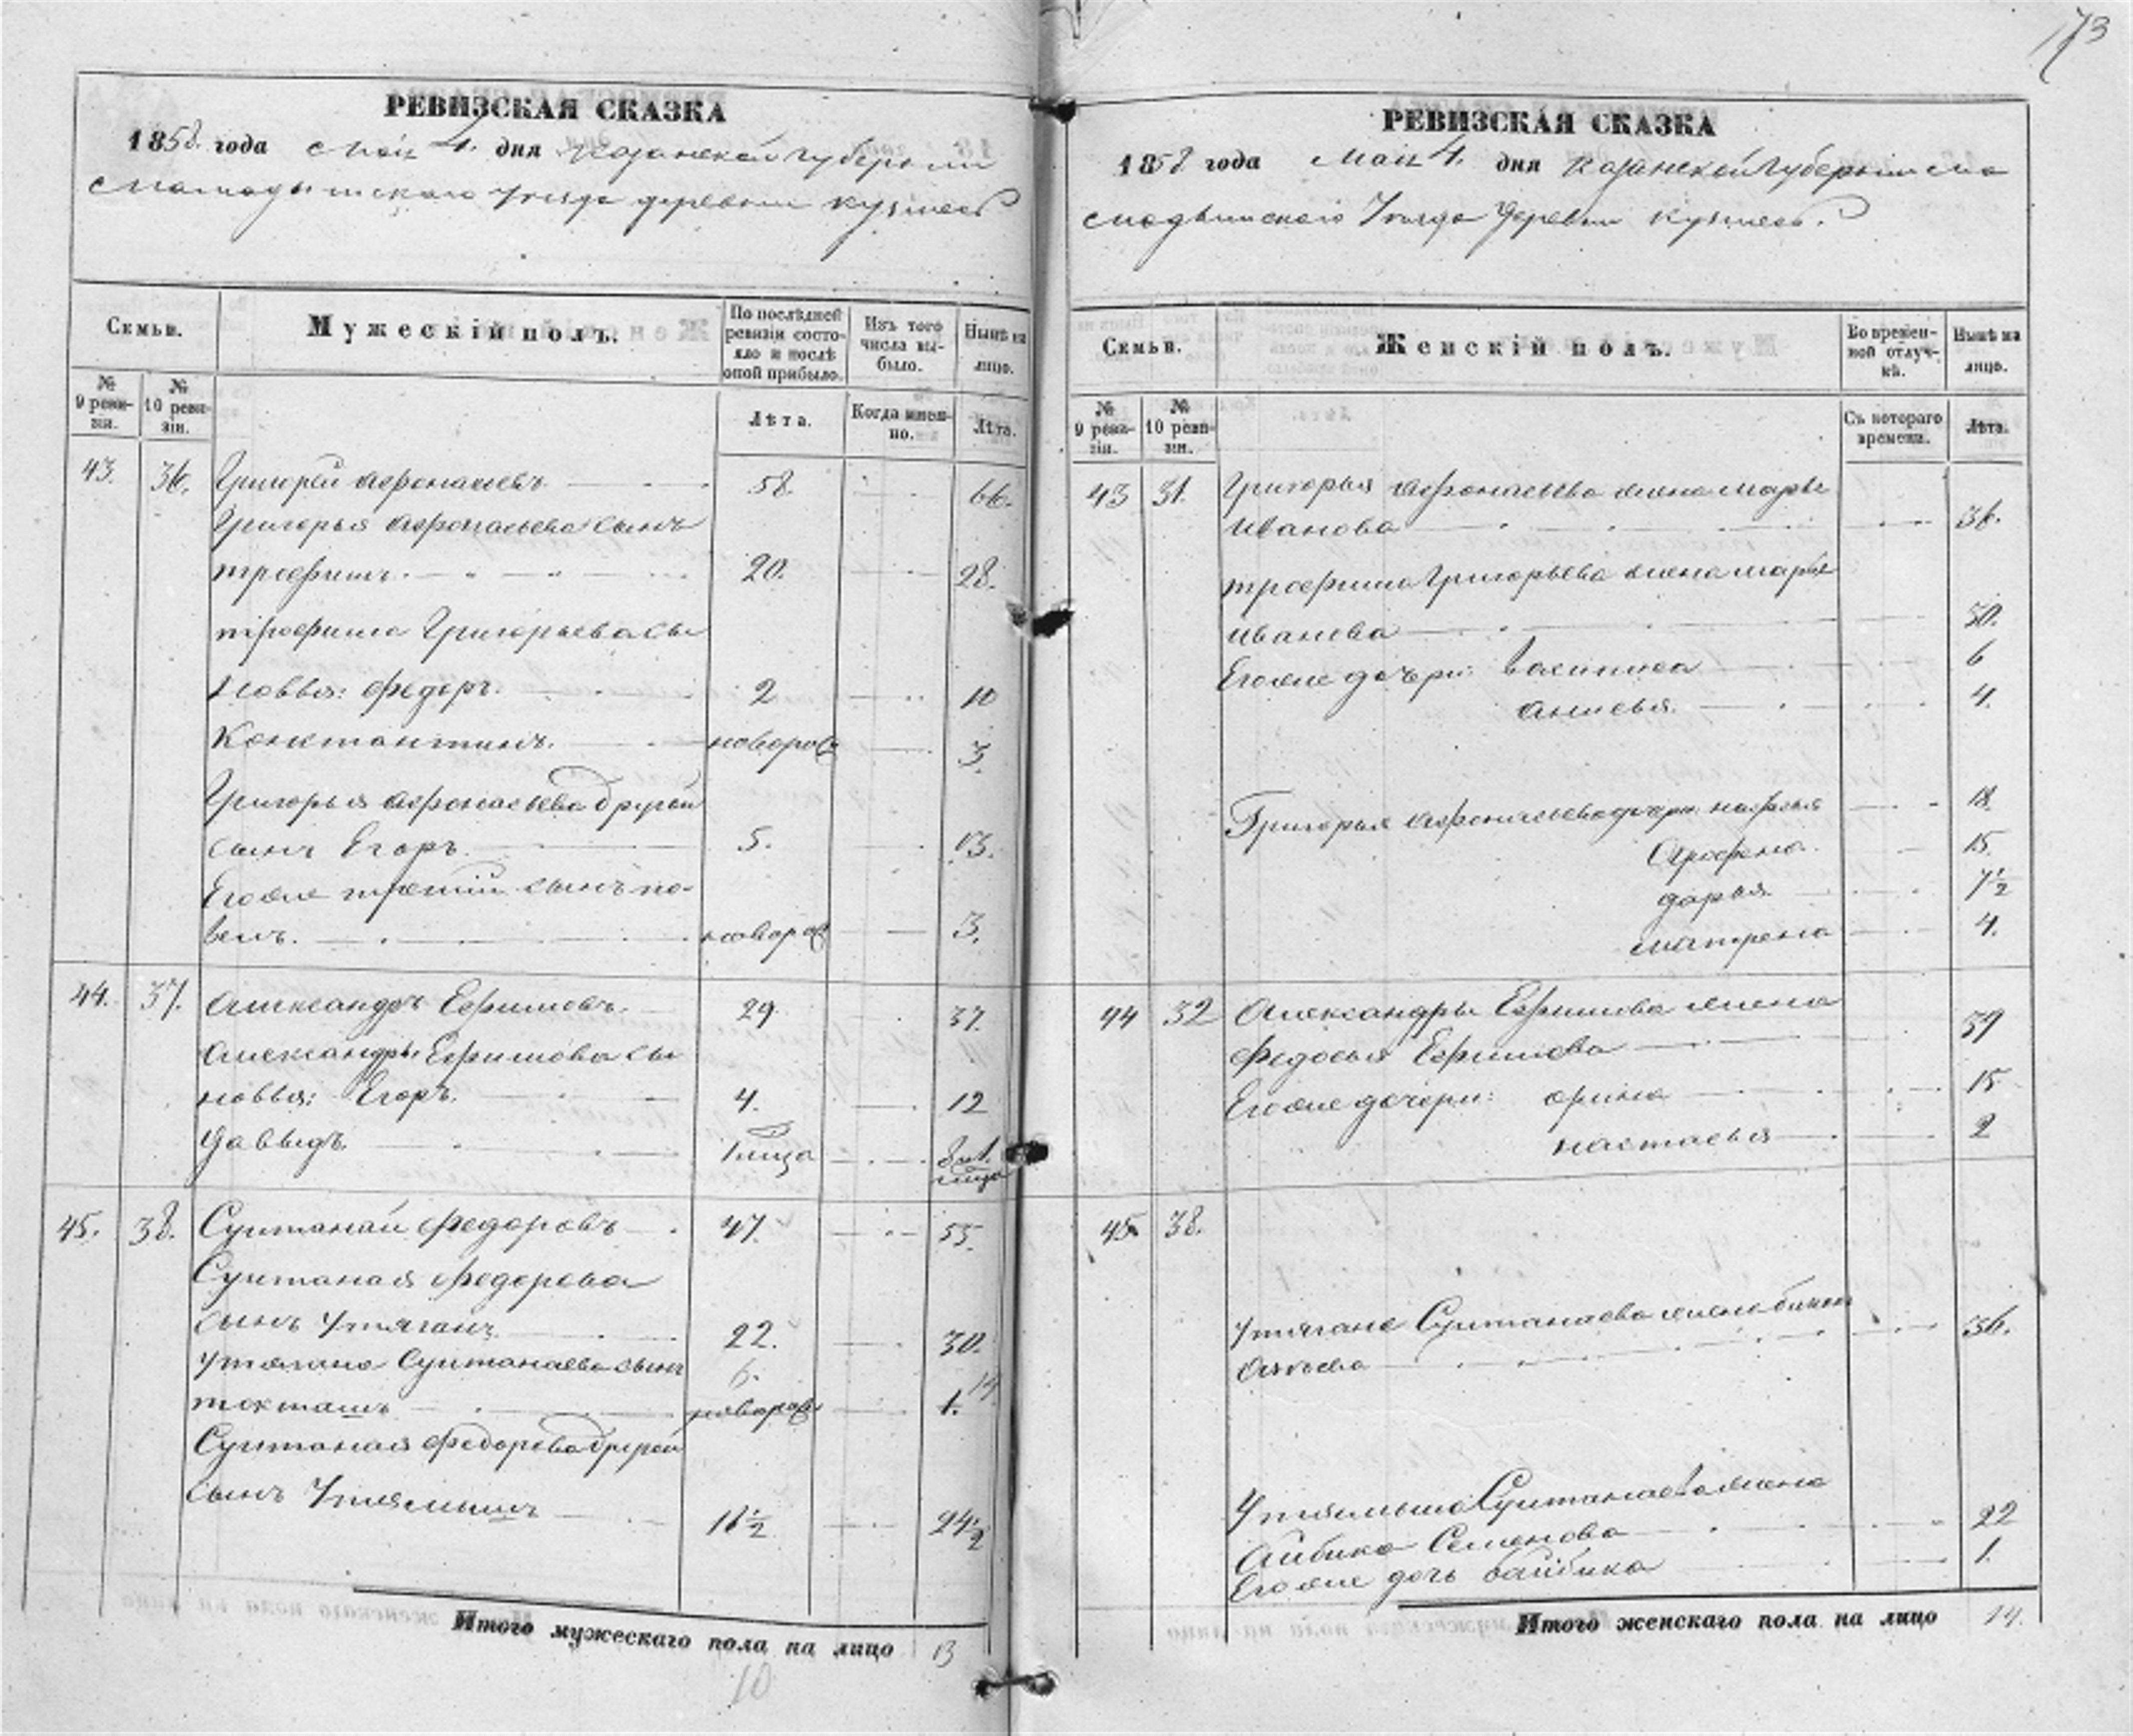 173
РЕВИЗСКАЯ СКАЗКА
1858 года Мая 4. дня Казанской губернии
Мамадышскаго Уезда деревни
Семьи.
Мужескій полъ.
По послѣдней ревизіи состояло и послѣ оной прибыло.
Изъ того числа выбыло.
Нынѣ на лицо.
№ 9 ревизіи.
№ 10 ревизіи.
Лѣта.
Когда именно.
Лѣта.
43. 36. Григорей Афонасьевъ 58. 66.
Григорья Афонасьева сынъ
трофимъ. 20. 28.
трофима Григорьева сы
новья: Федоръ. 2 10
Константинъ. новорож 3.
Григорья Афонасьева другой
сынъ Егоръ 5. 13.
Егоже третий сынъ па-
велъ. новорож 3.
44. 37. Александръ Ефимовъ. 29 37.
Александры Ефимова сы
новья: Егоръ. 4. 12
Давыдъ.
45. 38. Султанай Федоровъ 47. 55.
Султаная Федорова
сынъ Утяганъ 22. 30.
Утягана Султанаева сынъ 6. 14
токташъ новорож 1.
Султаная Федорова другой
сынъ Утямышъ 16½ 24½
Итого мужескаго пола на лицо 13
10
РЕВИЗСКАЯ СКАЗКА
1858 года Мая 4. дня Казанской Губернии Ма
мадышскаго Уезда Деревни
Семьи.
Женскій полъ.
Во временной отлучкѣ.
Нынѣ на лицо.
№ 9 ревизіи.
№ 10 ревизіи.
Съ котораго времени.
Лѣта.
43 31. Григорья Афонасьева жена Марья
Иванова 36.
трофима Григорьева жена Марья
Иванова 30.
Егоже дочери: Василиса 6
Анисья 4.
Григорья Афонасьева дочери: 18.
15.
дарья 7½
матрена 4.
44 32 Александры Ефимова жена
Федосья Ефимова 39
Егоже дочери: орина 15
настасья 2
45 38.
Утягана Султанаева жена
36.
Утямыша Султанаева жена
Айбика Семенова 22
Егоже дочь байбика 1.
Итого женскаго пола на лицо 14.